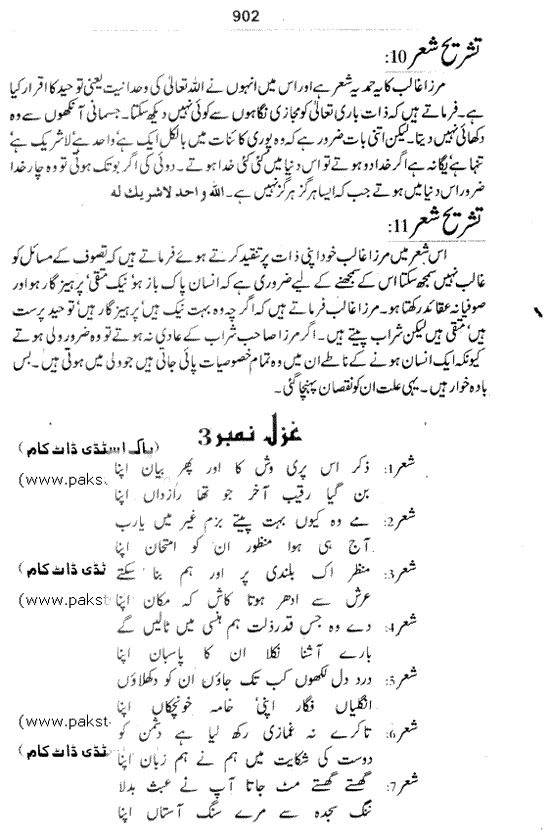 902
تشریح شعر 10:
مرزا غالب کا یہ حمدیہ شعر ہے اور اس میں انہوں نے اللہ تعالیٰ کی وحدانیت یعنی توحید کا اقرار کیا
ہے۔ فرماتے ہیں کہ ذات باری تعالیٰ کو مجازی نگاہوں سے کوئی نہیں دیکھ سکتا۔ جسمانی آنکھوں سے وہ
دکھائی نہیں دیتا۔ لیکن اتنی بات ضرور ہے کہ وہ پوری کائنات میں بالکل ایک ہے' واحد ہے' لاشریک ہے'
تنہا ہے' یگانہ ہے اگر خدا دو ہوتے تو اس دنیا میں کئی کئی خدا ہوتے۔ دوئی کی اگر بو تک ہوتی تو وہ چار خدا
ضرور اس دنیا میں ہوتے جب کہ ایسا ہرگز ہرگز نہیں ہے۔ اللہ واحد لاشریک لہ
تشریح شعر 11:
اس شعر میں مرزا غالب خود اپنی ذات پر تنقید کرتے ہوئے فرماتے ہیں کہ تصوف کے مسائل کو
غالب نہیں سمجھ سکتا اس کے سمجھنے کے لیے ضروری ہے کہ انسان پاک باز ہو' نیک متقی' پرہیز گار ہو اور
صوفیانہ عقائد رکھتا ہو۔ مرزا غالب فرماتے ہیں کہ اگرچہ وہ بہت نیک ہیں' پرہیز گار ہیں' توحید پرست
ہیں' متقی ہیں لیکن شراب پیتے ہیں۔ اگر مرزا صاحب شراب کے عادی نہ ہوتے تو وہ ضرور ولی ہوتے
کیونکہ ایک انسان ہونے کے ناطے ان میں وہ تمام خصوصیات پائی جاتی ہیں جو ولی میں ہوتی ہیں۔ بس
بادہ خوار ہیں۔ یہی علت ان کو نقصان پہنچا گئی۔
غزل نمبر 3
(پاک اسٹڈی ڈاٹ کام)
شعر 1: ذکر اس پری وش کا اور پھر بیان اپنا
(www.pakst
بن گیا رقیب آخر جو تھا رازداں اپنا
شعر 2: مے وہ کیوں بہت پیتے بزم غیر میں یارب
آج ہی ہوا منظور ان کو امتحان اپنا
شعر 3: منظر اک بلندی پر اور ہم بنا سکتے
ٹڈی ڈاٹ کام)
عرش سے ادھر ہوتا کاش کہ مکان اپنا
(www.pakst
شعر 4: دے وہ جس قدر ذلت ہم ہنسی میں ٹالیں گے
بارے آشنا نکلا ان کا پاسبان اپنا
شعر 5: درد دل لکھوں کب تک جاؤں ان کو دکھلاؤں
انگلیاں فگار اپنی' خامہ خونچکاں اپنا
شعر 6: تاکرے نہ غمازی رکھ لیا ہے دشمن کو
(www.pakst
دوست کی شکایت میں ہم نے ہم زبان اپنا
سٹڈی ڈاٹ کام)
شعر 7: گھستے گھستے مٹ جاتا آپ نے عبث بدلا
ننگ سجدہ سے مرے سنگ آستاں اپنا